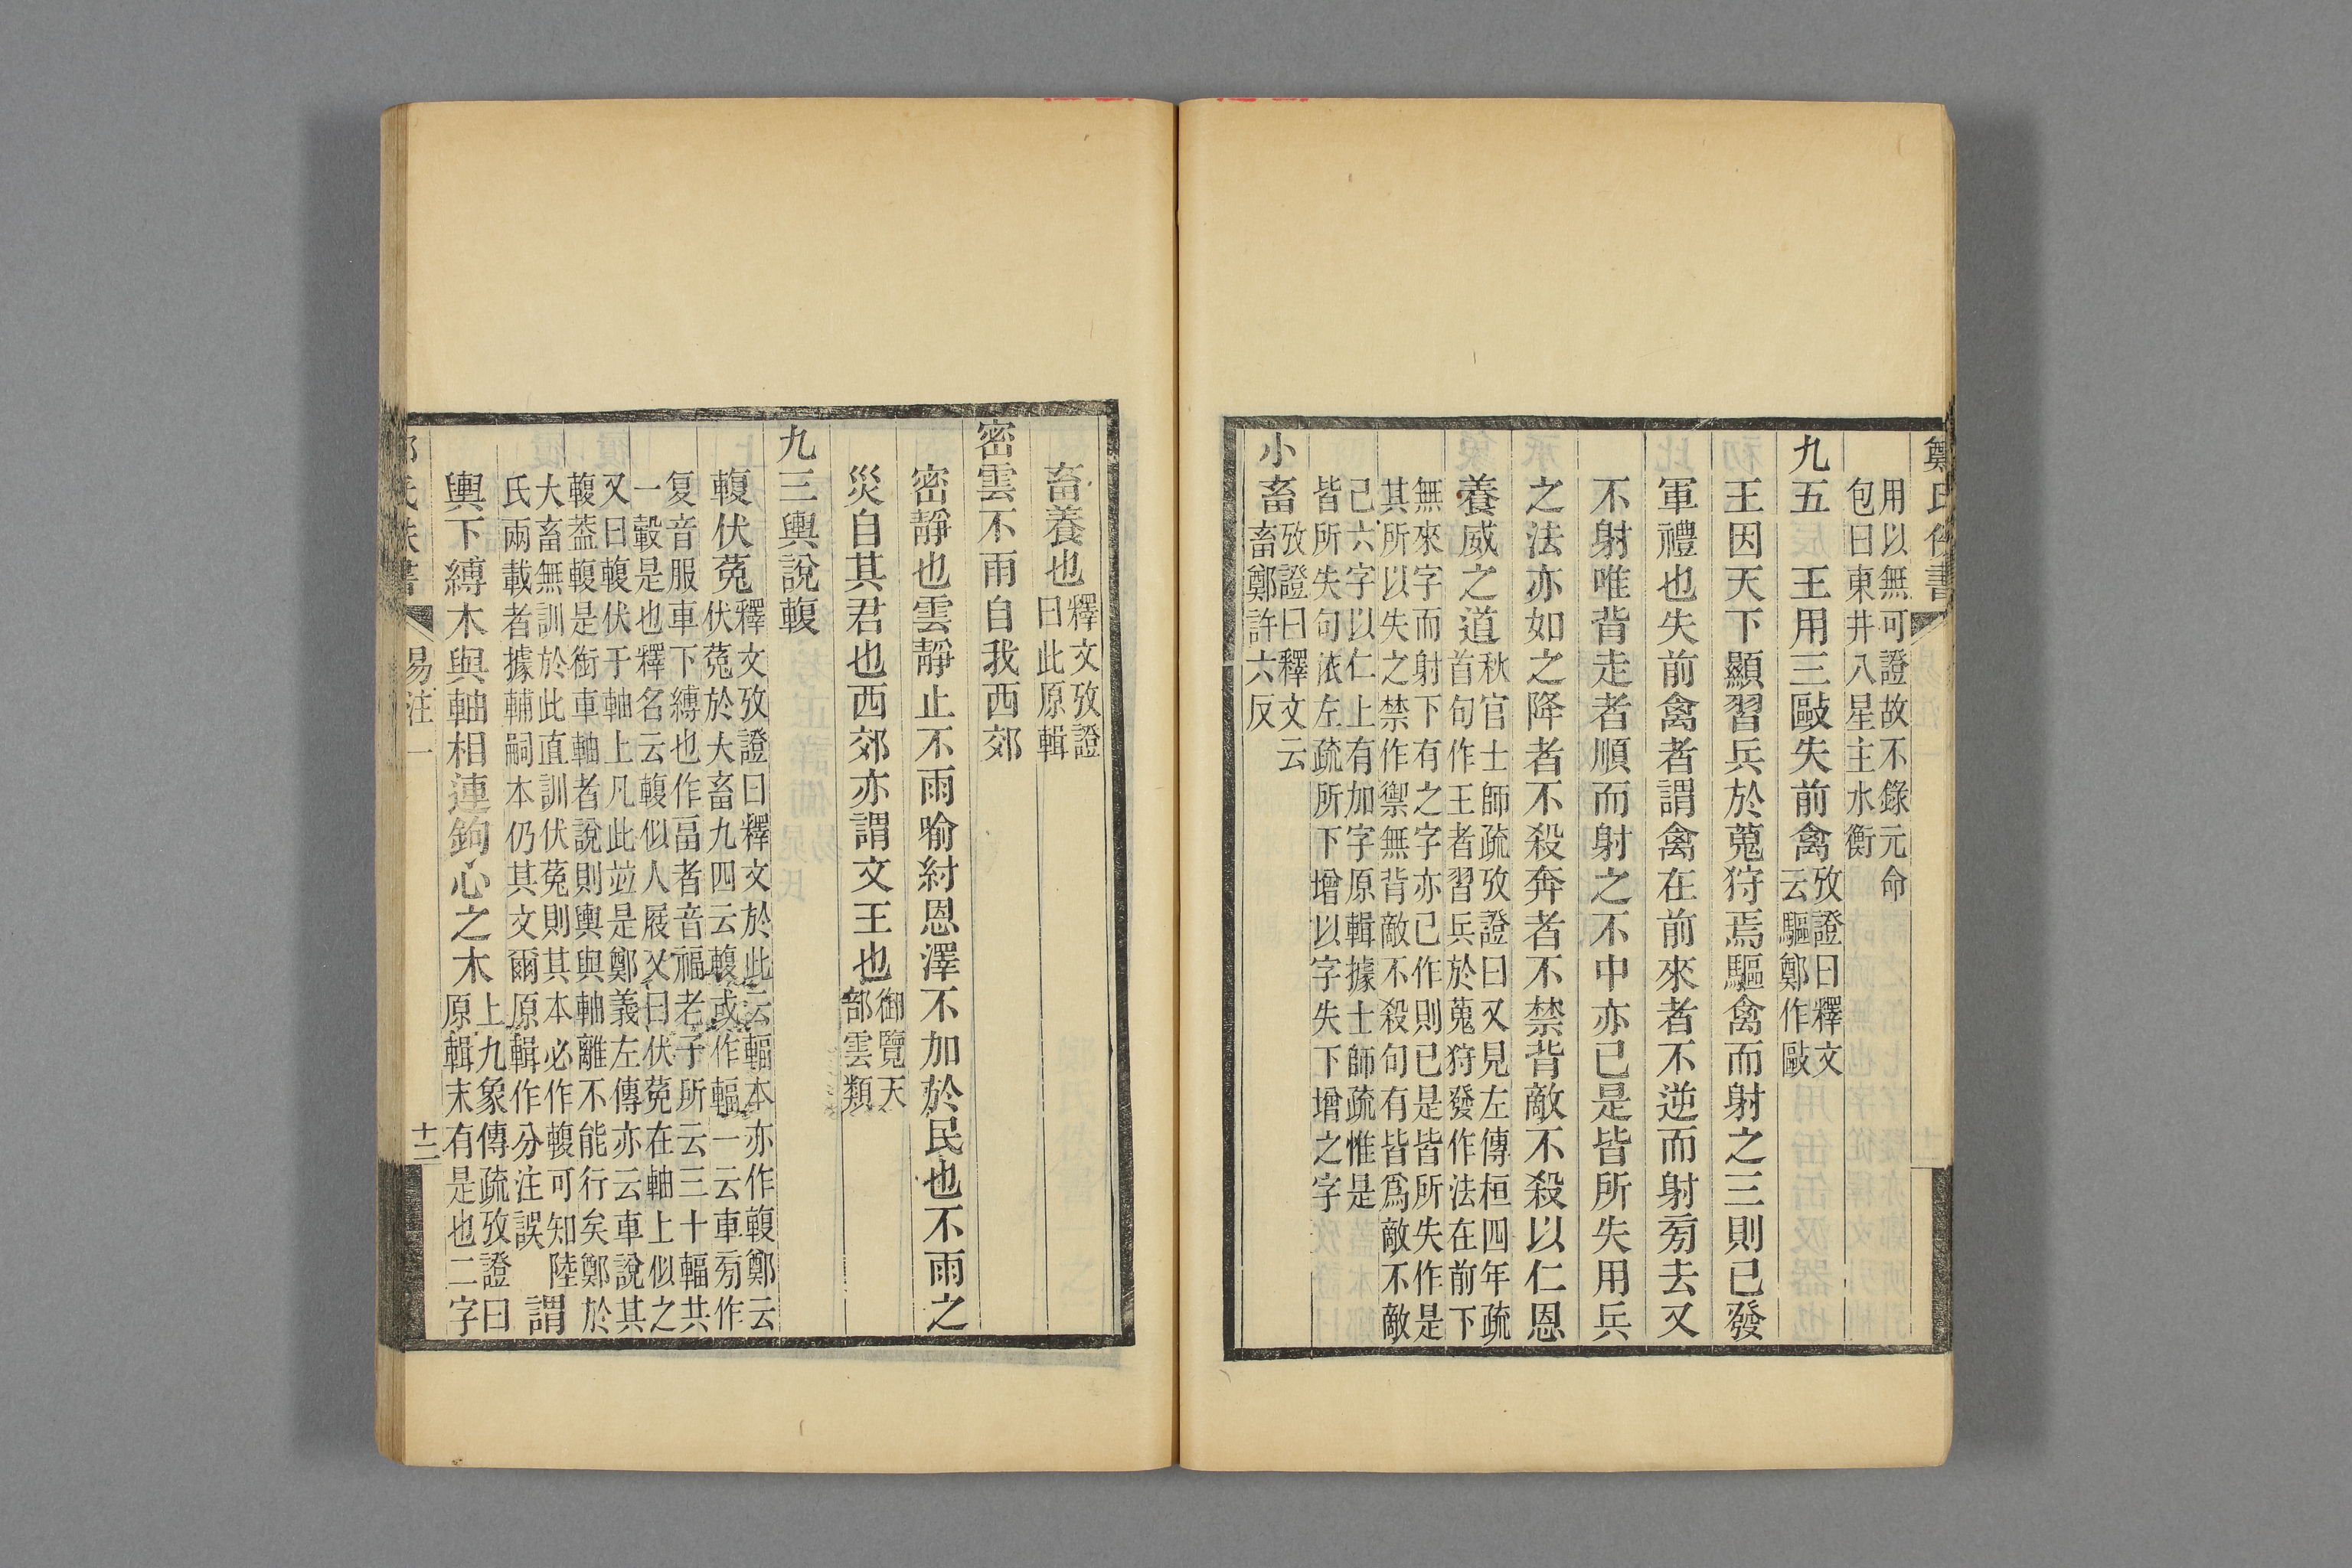 鄭氏佚書
用以無可證故不錄元命
包曰東井八星主水衡
九五王用三敺失前禽攷證曰釋文
云驅鄭作敺
王因天下顯習兵於蒐狩焉驅禽而射之三則已發
軍禮也失前禽者謂禽在前來者不逆而射旁去又
不射唯背走者順而射之不中亦已是皆所失用兵
之法亦如之降者不殺奔者不禁背敵不殺以仁恩
養威之道秋官士師疏攷證曰又見左傳桓四年疏
首句作王者習兵於蒐狩發作法在前下
無來字而射下有之字亦已作則已是皆所失作是
其所以失之禁作禦無背敵不殺句有皆爲敵不敵
己六字以仁上有加字原輯據士師疏惟是
皆所失句依左疏所下增以字失下增之字
小畜攷證曰釋文云
畜鄭許六反
畜養也釋文攷證
曰此原輯
密雲不雨自我西郊
密靜也雲靜止不雨喻紂恩澤不加於民也不雨之
災自其君也西郊亦謂文王也御覽天
部雲類
九三輿說輹
輹伏菟釋文攷證曰釋文於此云輻本亦作輹鄭云
伏菟於大畜九四云輹或作輻一云車旁作
复音服車下縛也作畐者音福老子所云三十輻共
一轂是也釋名云輹似人屐又曰伏菟在軸上似之
又曰輹伏于軸上凡此竝是鄭義左傳亦云車說其
輹葢輹是銜車軸者說則輿與軸離不能行矣鄭於
大畜無訓於此直訓伏菟則其本必作輹可知陸
氏兩載者據輔嗣本仍其文爾原輯作分注誤
謂
輿下縛木與軸相連鉤心之木上九象傳疏攷證曰
原輯末有是也二字
氏佚書
易注一
十二